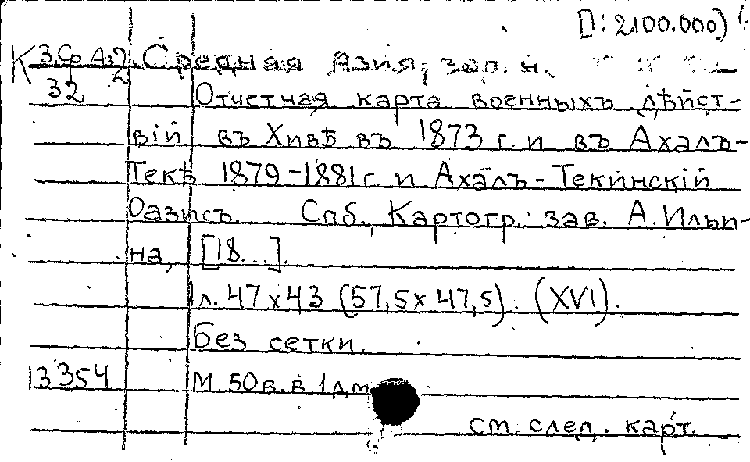 [1:2100.000)
К З.Ср.Аз.2 Средная Азия, зап. ч.
32 Отчетная карта военныхъ дѣйст-
вій въ Хивѣ въ 1873 г. и въ Ахалъ-
Текѣ 1879-1881 г. и Ахалъ-Текинскій
Оазисъ. Спб., Картогр. зав. А. Ильи-
на, [18...].
1 л. 47 x 43 (57,5 x 47,5). (XVI).
Без сетки.
13354 М 50 в. в 1 дм.
см. след. карт.